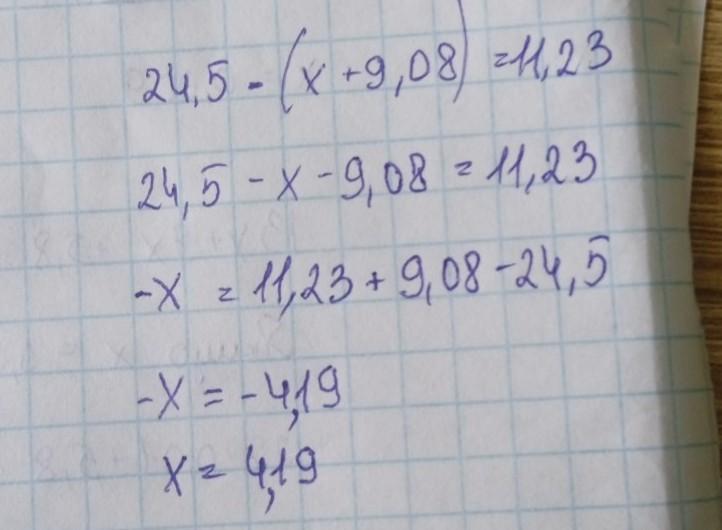 24,5 - (x + 9,08) = 11,23
24,5 - x - 9,08 = 11,23
-x = 11,23 + 9,08 - 24,5
-x = -4,19
x = 4,19